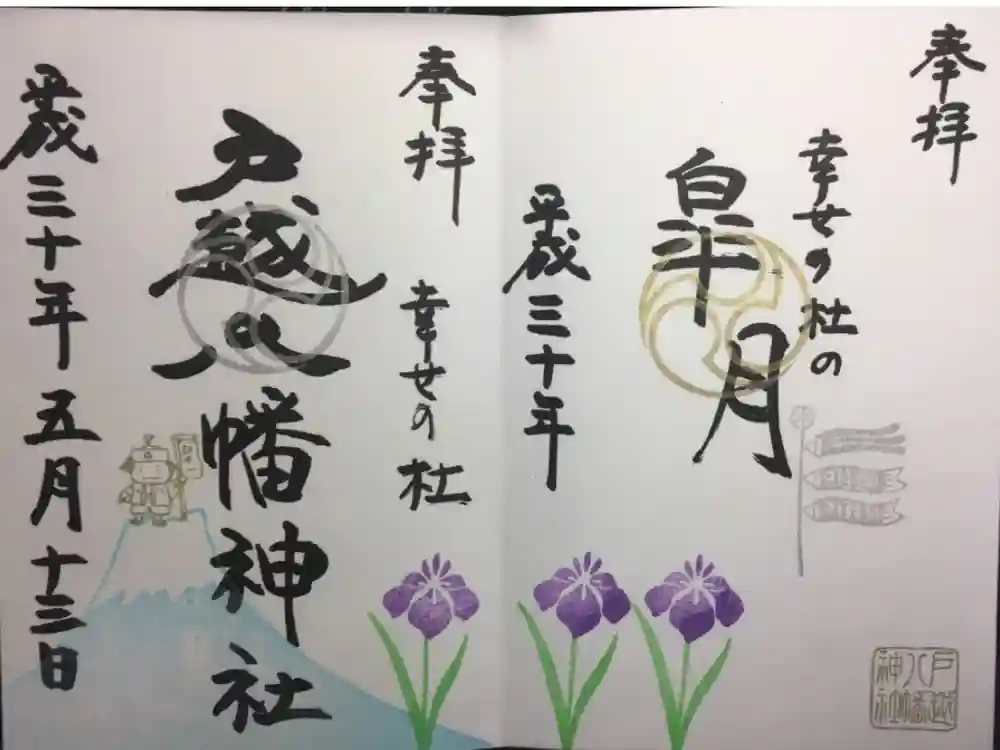 奉拝
幸せの杜の
皐月
平成三十年
戸越
八幡
神社
奉拝
幸せの杜
戸越八幡神社
平成三十年五月十三日